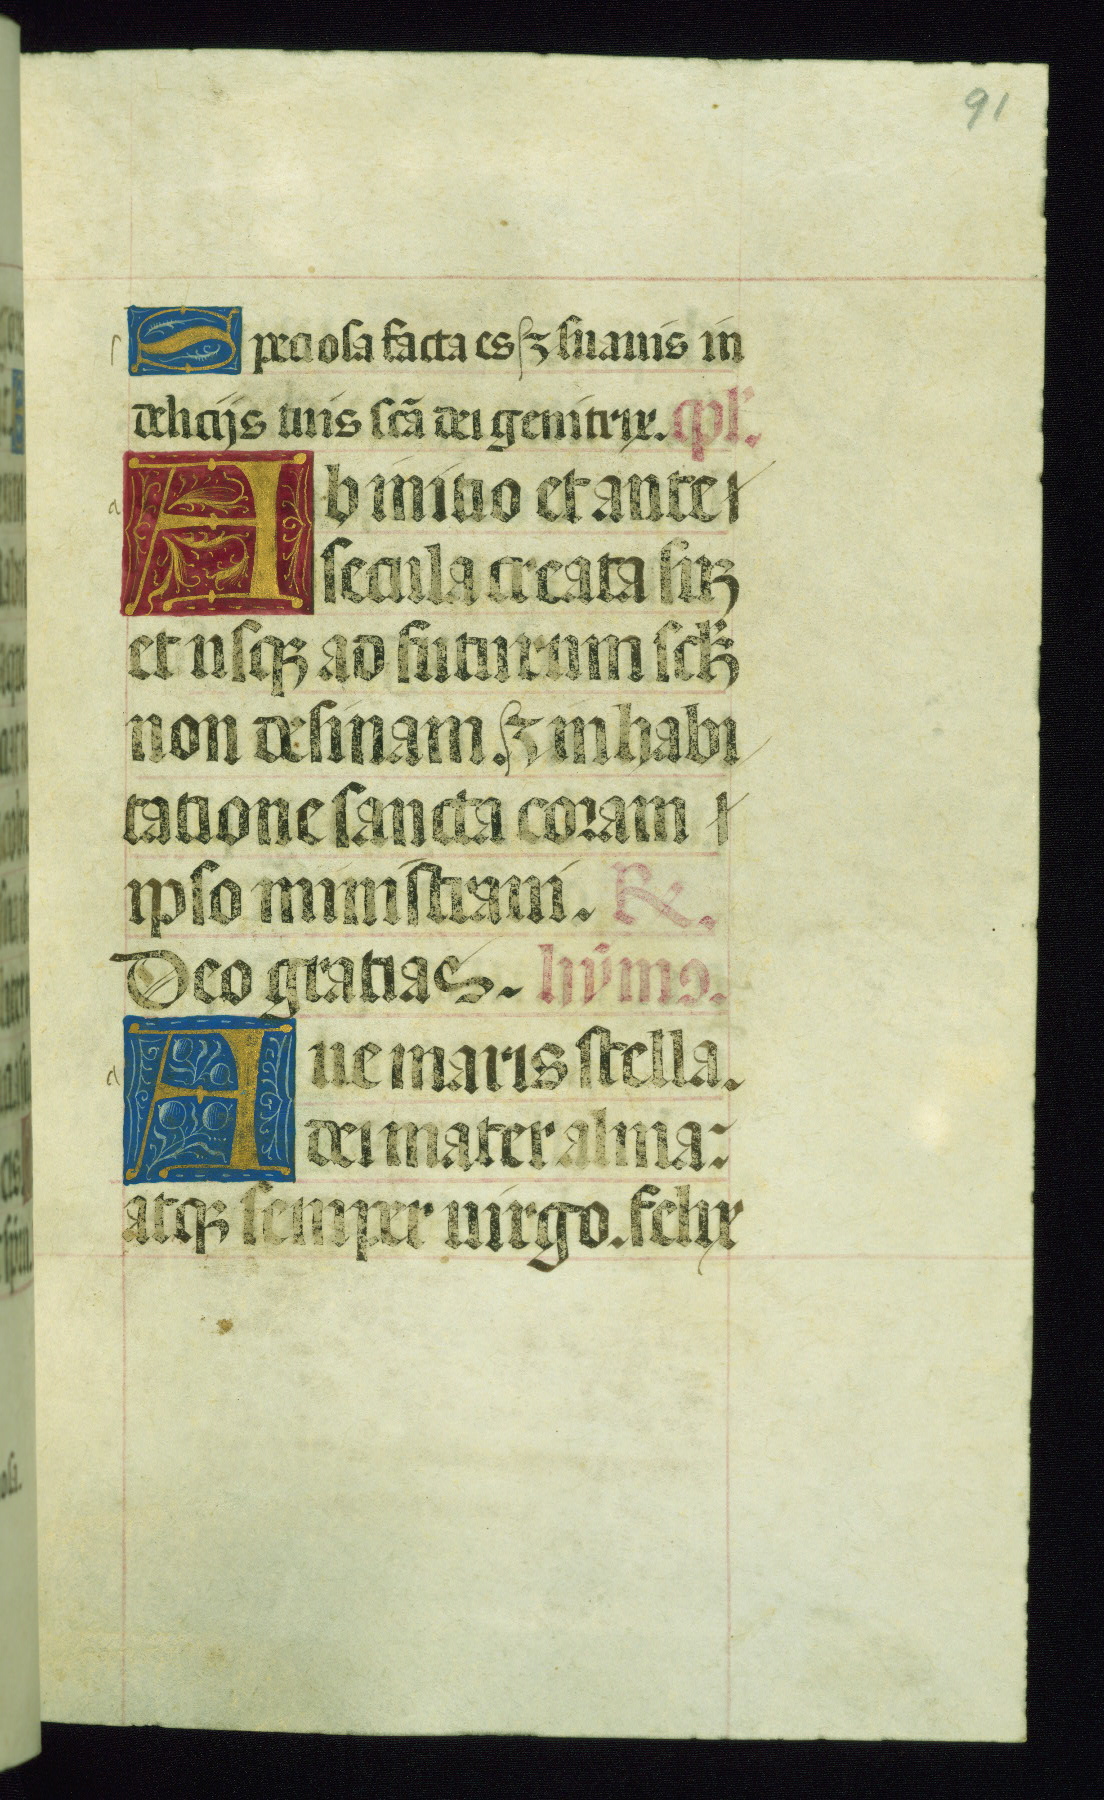 91
Speciosa facta es ⁊ suauis in
delicijs tuis scā dei genitrix. cpl'.
Ab initio et ante
secula creata suꝫ
et usqꝫ ad futurum sclꝫ
non desinam. ⁊ in habi
tatione sancta coram
ipso ministraui. ℟.
Deo gratias. hȳmꝰ.
Aue maris stella.
dei mater alma:
atqꝫ semper uirgo. felix